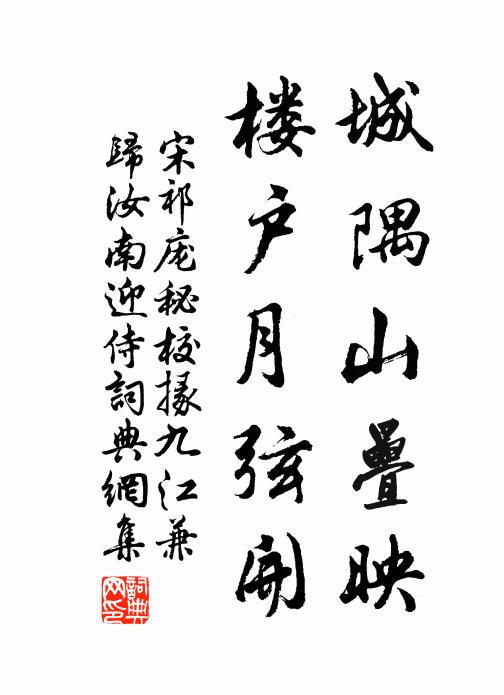 城隅山疊映
楼户月弦開
宋祁庞秘校掾九江兼
歸汝南迎侍詞典網集